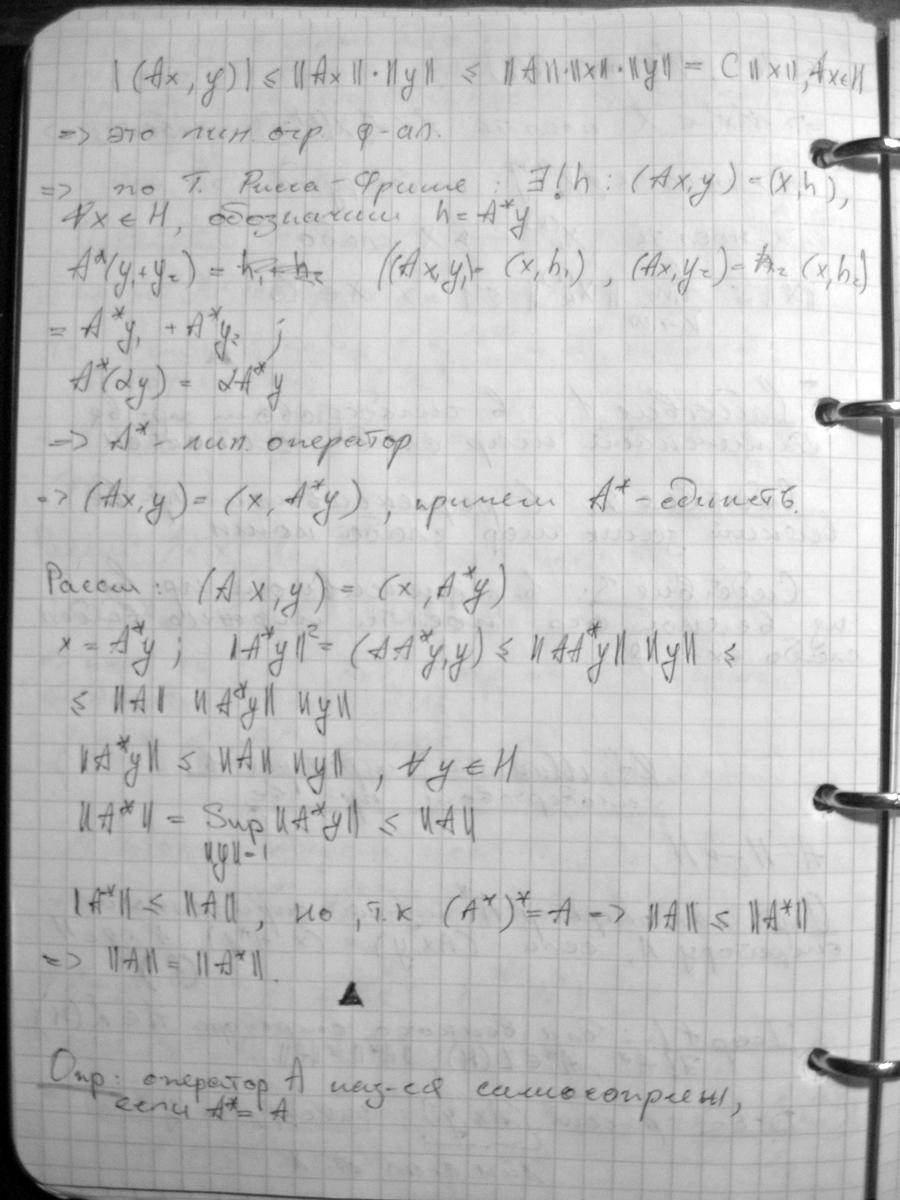 |(Ax, y)| ≤ ||Ax||·||y|| ≤ ||A||·||x||·||y|| = C||x||, ∀x∈H
=> это лин. огр. ф-ал.
=> по Т. Рисса-Фрише : ∃! h : (Ax,y) = (x,h),
∀x ∈ H, обозначим h = A*y
A*(y₁+y₂) = h₁ + h₂ ((Ax,y₁) = (x,h₁) , (Ax,y₂) = (x,h₂)
= A*y₁ + A*y₂ ;
A*(αy) = αA*y
=> A* - лин. оператор
=> (Ax,y) = (x, A*y) , причем A* - единств.
Рассм: (Ax,y) = (x, A*y)
x = A*y ; ||A*y||² = (AA*y,y) ≤ ||AA*y|| ||y|| ≤
≤ ||A|| ||A*y|| ||y||
||A*y|| ≤ ||A|| ||y|| , ∀y ∈ H
||A*|| = Sup ||A*y|| ≤ ||A||
||y||=1
||A*|| ≤ ||A|| , но , т.к (A*)* = A => ||A|| ≤ ||A*||
=> ||A|| = ||A*||.
▲
Опр: оператор A наз-ся самосопряж,
если A* = A